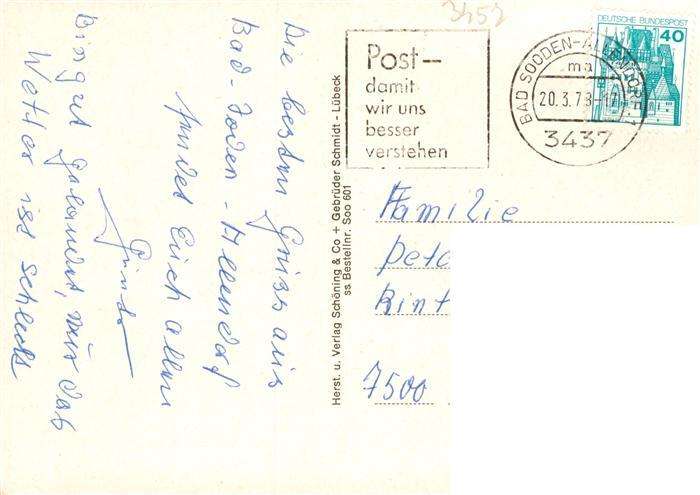 Die besten Grüss aus
Bad-Soden-Allendorf
sendet Euch allen
Bin gut gelandet, nur das
Wetter iss schlecht
Herst. u. Verlag Schöning & Co + Gebrüder Schmidt - Lübeck
ss Bestellnr. Soo 601
3452
Post-
damit
wir uns
besser
verstehen
BAD SOODEN-ALLENDORF 1
ma
20.3.78-17
3437
DEUTSCHE BUNDESPOST
40
Familie
Peta
Rint
7500